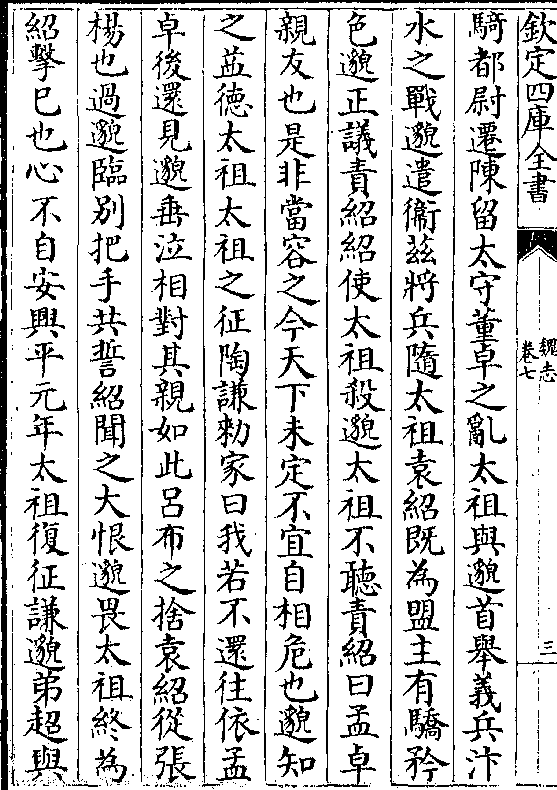 欽定四庫全書
魏志
卷七
三
騎都尉遷陳留太守董卓之亂太祖與邈首舉義兵汴
水之戰邈遣衞茲將兵隨太祖袁紹既為盟主有驕矜
色邈正議責紹紹使太祖殺邈太祖不聽責紹曰孟卓
親友也是非當容之今天下未定不宜自相危也邈知
之益德太祖太祖之征陶謙勑家曰我若不還往依孟
卓後還見邈垂泣相對其親如此呂布之捨袁紹從張
楊也過邈臨别把手共誓紹聞之大恨邈畏太祖終為
紹擊已也心不自安興平元年太祖復征謙邈弟超與